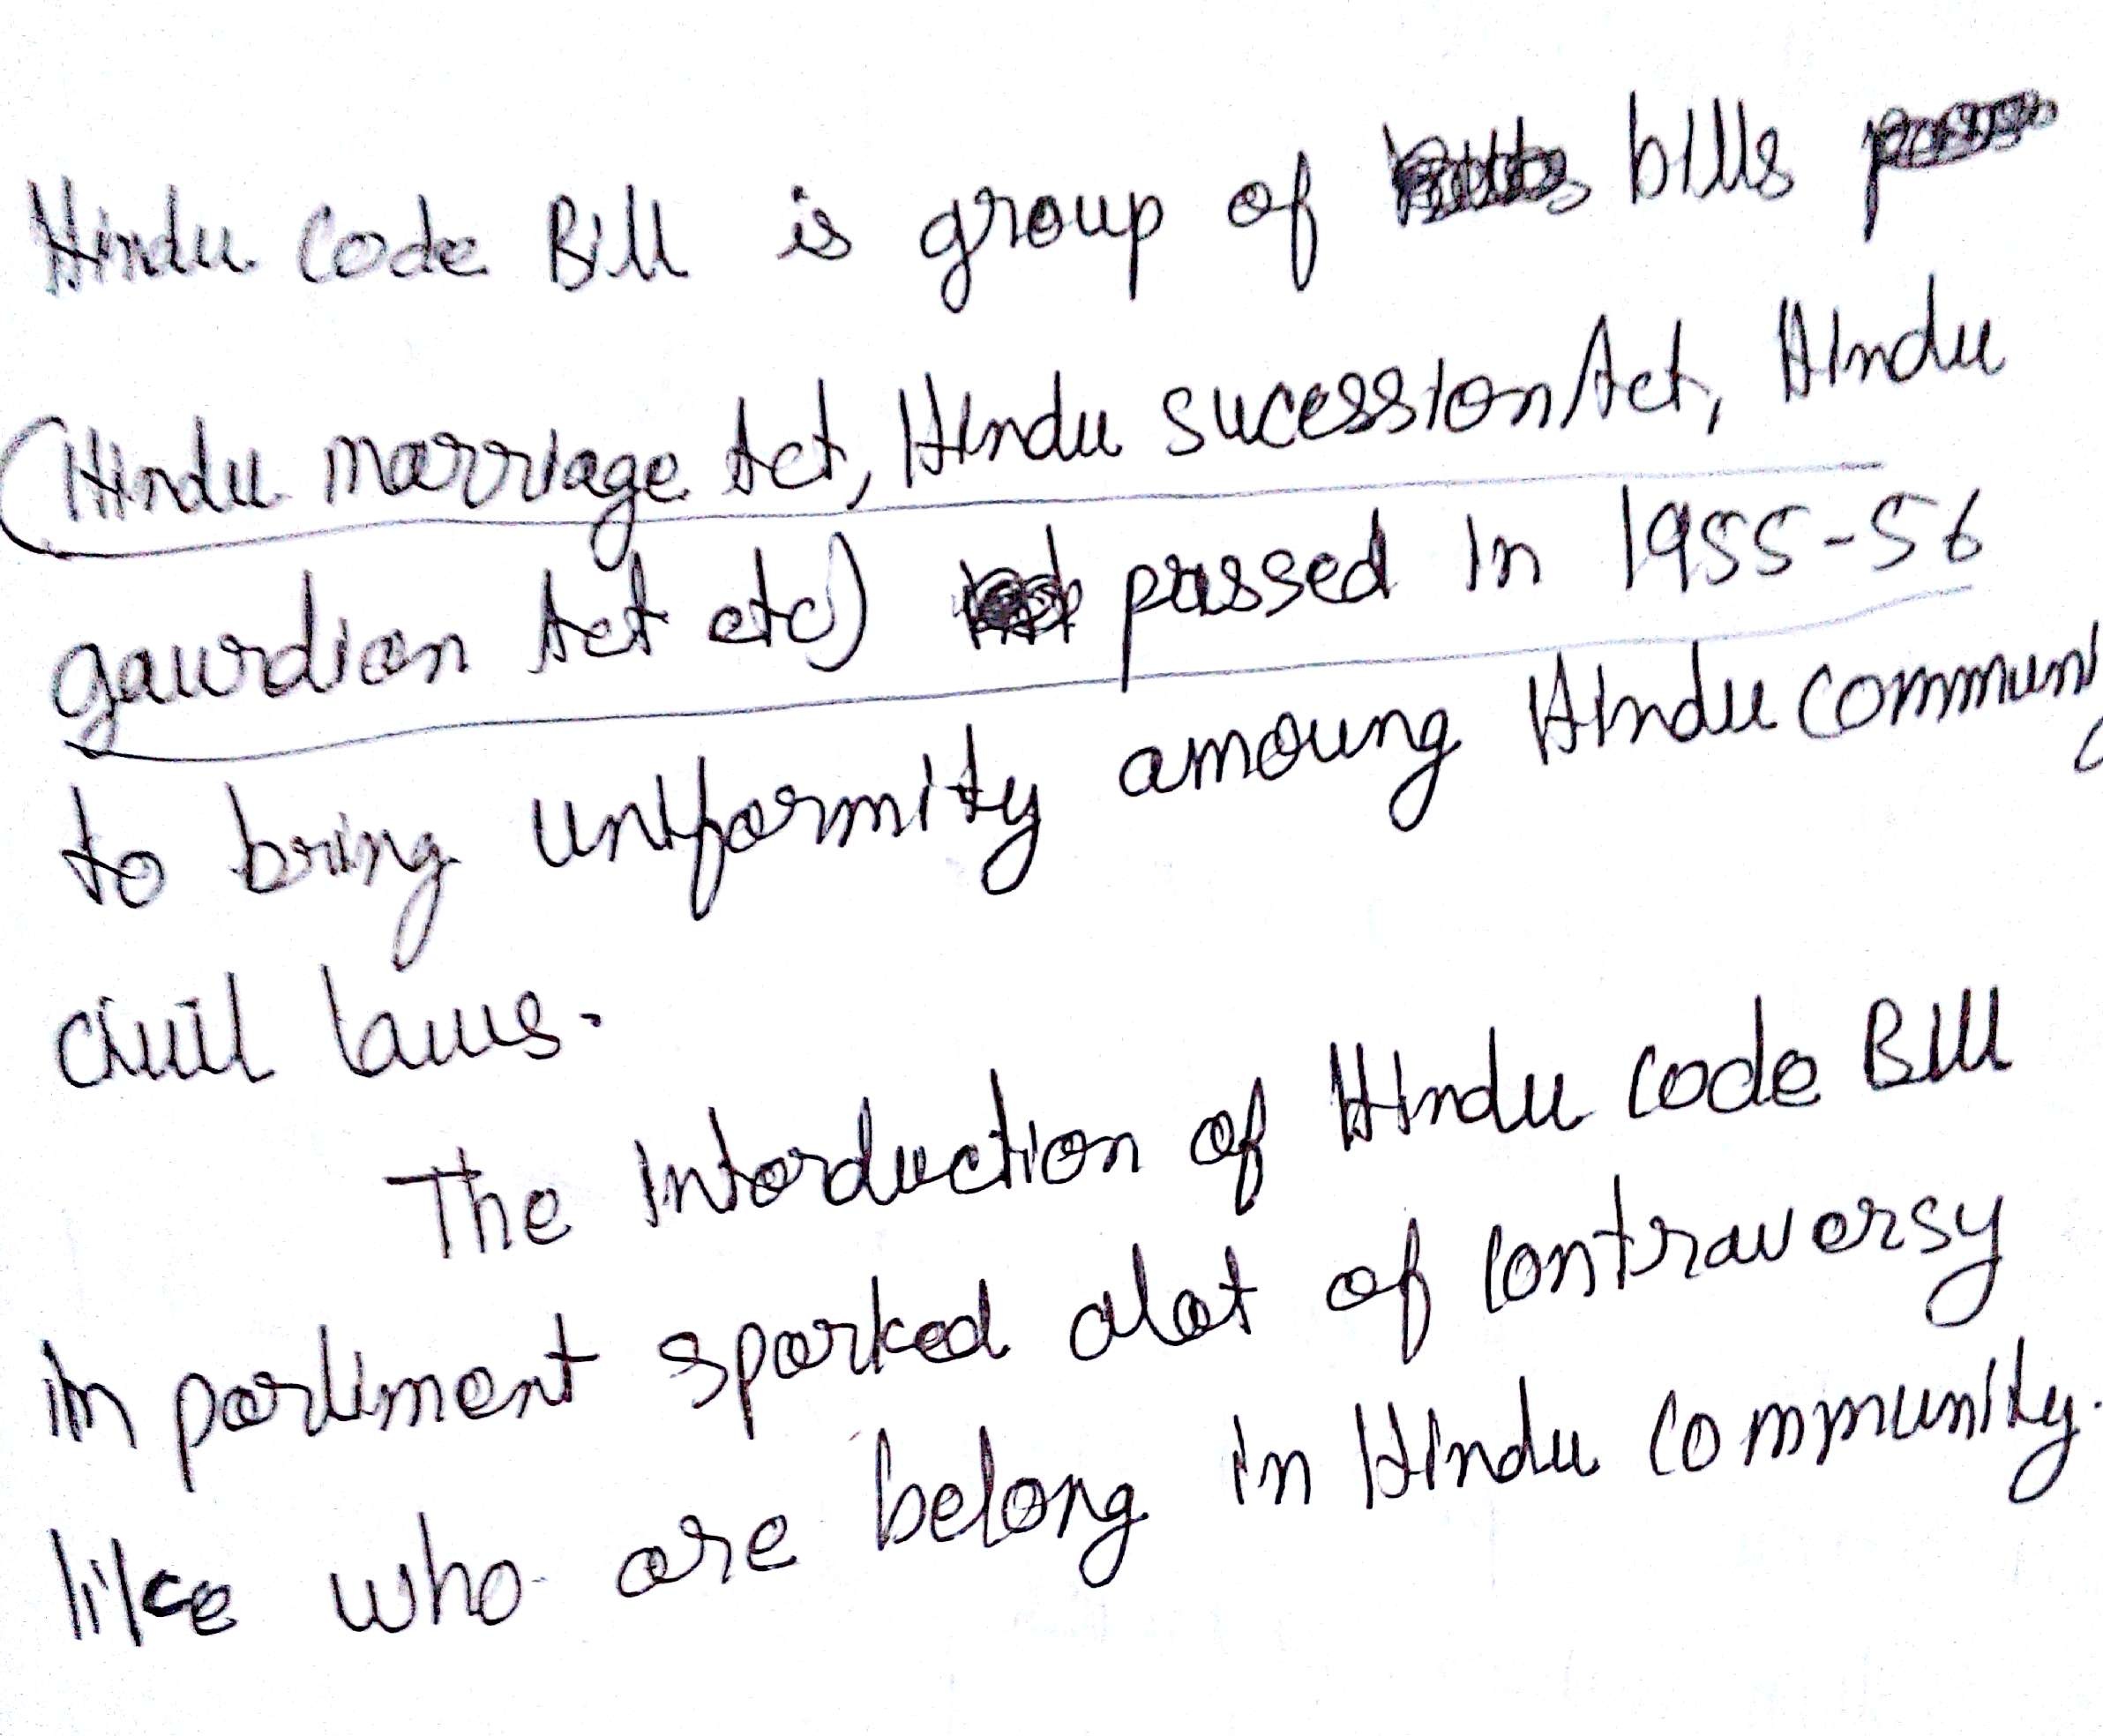 Hindu Code Bill is group of bills
(Hindu marriage Act, Hindu sucession Act, Hindu
gaurdian Act etc) passed in 1955-56
to bring uniformity amoung Hindu communi
civil laws.
The Intorduction of Hindu code Bill
in parliment sparked alot of contraversy
like who are belong in Hindu community.